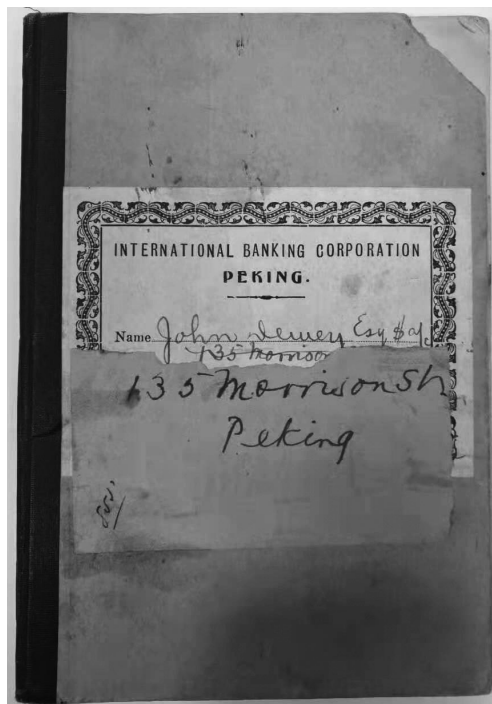 INTERNATIONAL BANKING CORPORATION
PEKING.
Name John Dewey Esq $ a/c
135 Morrison
135 Morrison Str
Peking